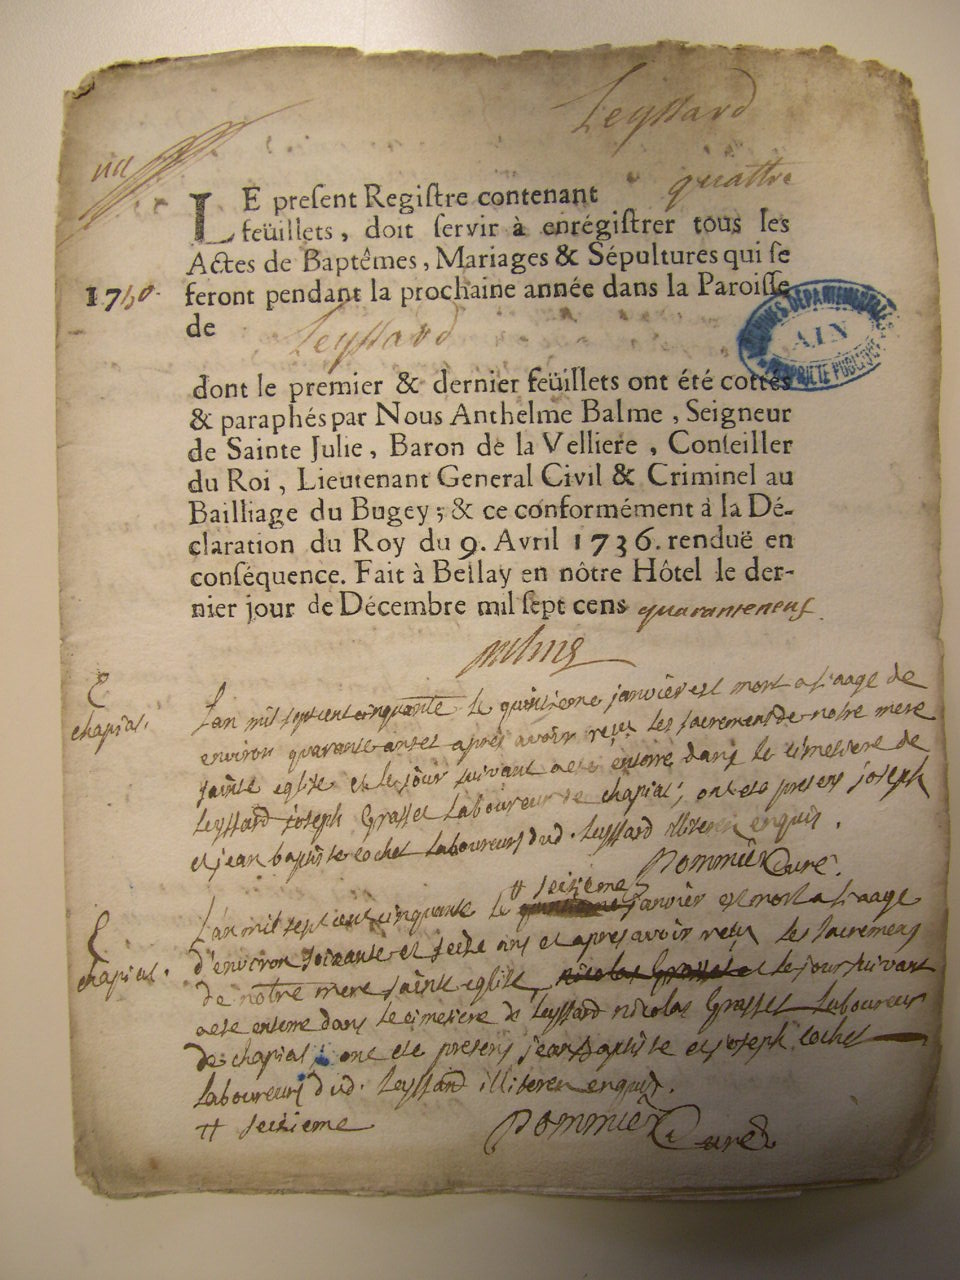 Leyssard
quattre
LE present Registre contenant
feüillets, doit servir à enrégistrer tous les
Actes de Baptêmes, Mariages & Sépultures qui se
1750. feront pendant la prochaine année dans la Paroisse
de Leyssard
ARCHIVES DÉPARTEMENTALES
AIN
PROPRIÉTÉ PUBLIQUE
dont le premier & dernier feüillets ont été cottés
& paraphés par Nous Anthelme Balme, Seigneur
de Sainte Julie, Baron de la Velliere, Conseiller
du Roi, Lieutenant General Civil & Criminel au
Bailliage du Bugey; & ce conformément à la Dé-
claration du Roy du 9. Avril 1736. renduë en
conséquence. Fait à Bellay en nôtre Hôtel le der-
nier jour de Décembre mil sept cens quaranteneuf
chapiat.
Lan mil sept cent cinquante le quinzieme janvier est mort a l'aage de
environ quarante ans et apres avoir reçus les sacrements de notre mere
sainte eglise et le jour suivant a esté enterré dans le cimetiere de
Leyssard joseph Grasset Laboureur de chapiat, ont ete presens joseph
et jean baptiste cochet Laboureurs dud. Leyssard illiteres enquis.
Pommier Curé.
# seizieme
chapiat.
L'an mil sept cent cinquante le janvier est mort a l'aage
d'environ soixante et seize ans et apres avoir reçu les sacremens
de notre mere sainte eglise nicolas Grasset et le jour suivant
a esté enterré dans le cimetiere de Leyssard nicolas Grasset Laboureur
de chapiat; ont ete presens jean Baptiste et joseph cochet
Laboureurs dud. Leyssard illiteres enquis.
# seizieme
Pommier Curé